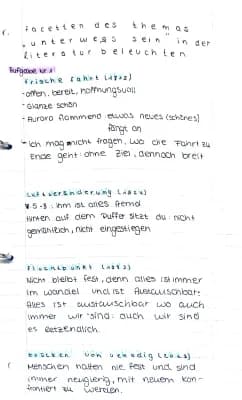 1. facetten des themas
„unterwegs sein“ in der
literatur beleuchten
Aufgabe nr. 1
frische fahrt (1815)
-offen, bereit, hoffnungsvoll
-Glanze schön
-Aurora flammend etwas neues (schönes)
fängt an
-Ich mag nicht fragen, wo die Fahrt zu
Ende geht: ohne Ziel, dennoch breit
luftveränderung
V. 5-8: ihm ist alles fremd
Hinten auf dem Puffer sitzt du: nicht
gemütlich, nicht eingestiegen
fluchtpunkt
Nicht bleibt fest, denn alles ist immer
im Wandel und ist Austauschbar-
Alles ist austauschbar wo auch
immer wir sind: auch wir sind
es letzendlich.
von venedig
Menschen halten nie fest und sind
immer neugierig, mit neuem kon-
frontiert zu werden.